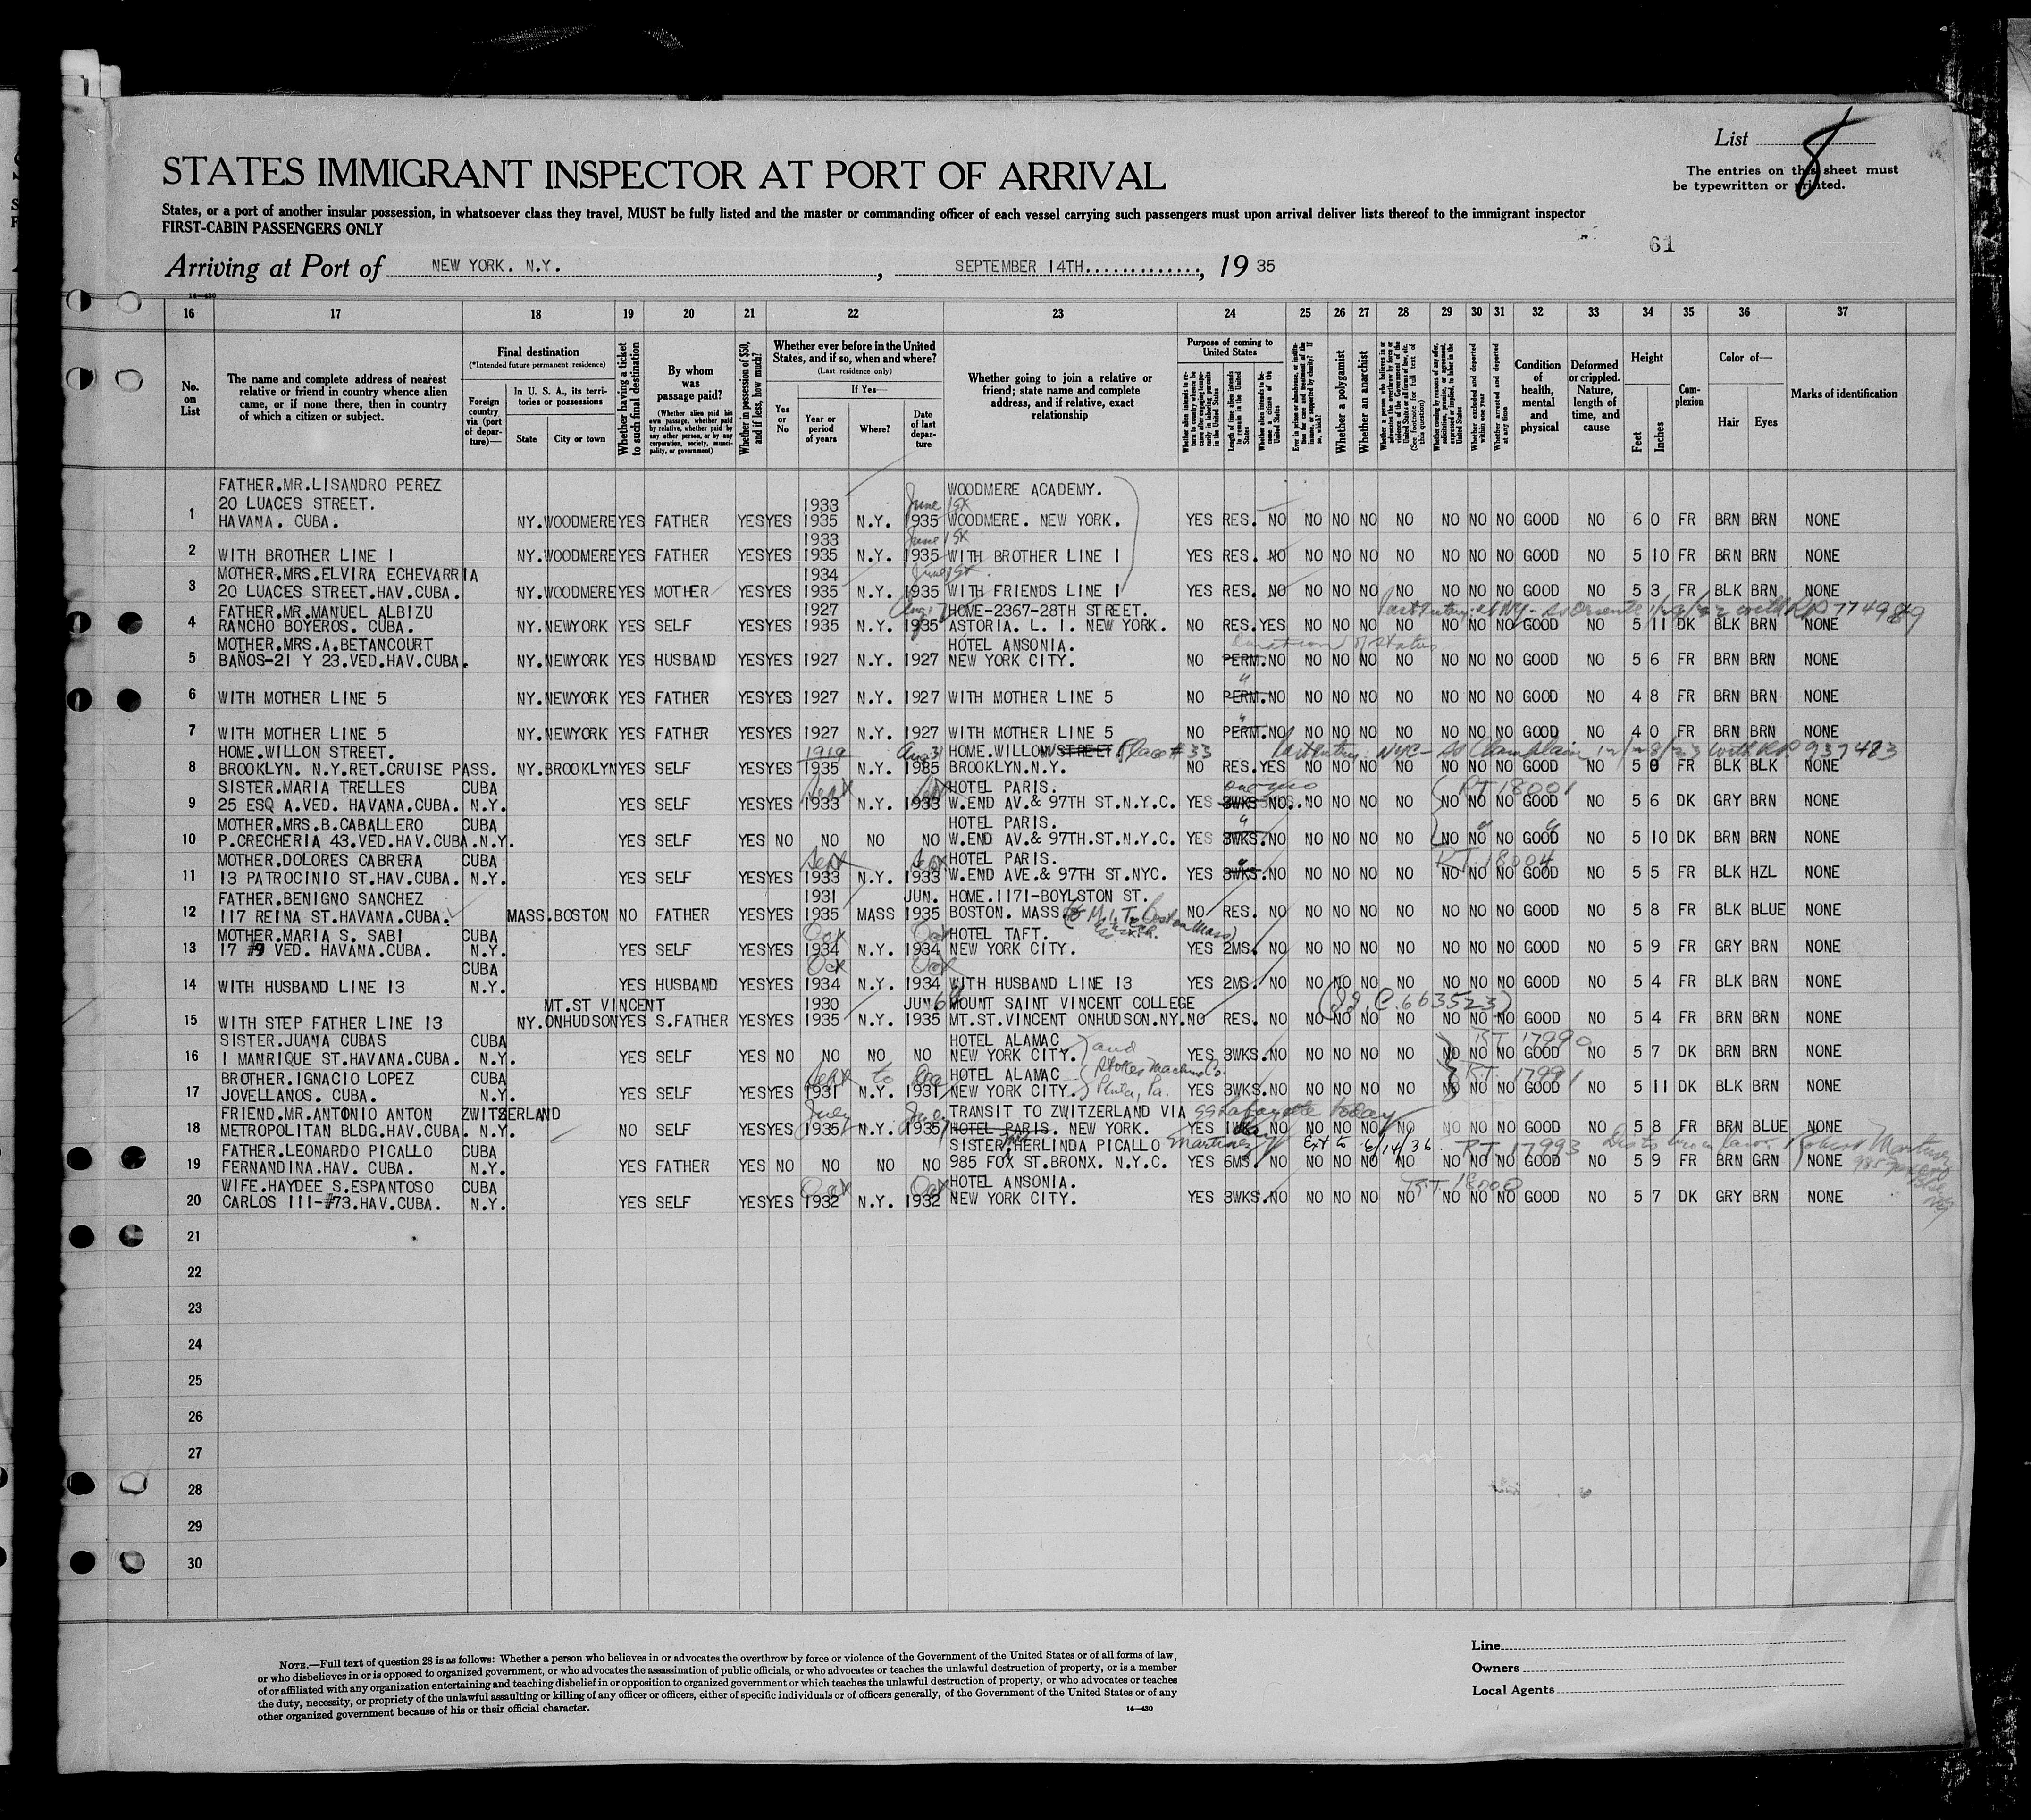 List 8
The entries on this sheet must
be typewritten or printed.
STATES IMMIGRANT INSPECTOR AT PORT OF ARRIVAL
States, or a port of another insular possession, in whatsoever class they travel, MUST be fully listed and the master or commanding officer of each vessel carrying such passengers must upon arrival deliver lists thereof to the immigrant inspector
FIRST-CABIN PASSENGERS ONLY
61
Arriving at Port of NEW YORK. N.Y. , SEPTEMBER 14TH............., 19 35
14—430
16 17 18 19 20 21 22 23 24 25 26 27 28 29 30 31 32 33 34 35 36 37
No. on List
The name and complete address of nearest relative or friend in country whence alien came, or if none there, then in country of which a citizen or subject.
Final destination
(*Intended future permanent residence)
Foreign country via (port of departure)—
In U. S. A., its territories or possessions
State City or town
Whether having a ticket to such final destination
By whom was passage paid?
(Whether alien paid his own passage, whether paid by relative, whether paid by any other person, or by any corporation, society, municipality, or government)
Whether in possession of $50, and if less, how much?
Whether ever before in the United States, and if so, when and where?
(Last residence only)
Yes or No
If Yes—
Year or period of years
Where?
Date of last departure
Whether going to join a relative or friend; state name and complete address, and if relative, exact relationship
Purpose of coming to United States
Length of time alien intends to remain in the United States
Whether alien intends to become a citizen of the United States
Whether a polygamist
Whether an anarchist
Whether excluded and deported within one year
Whether arrested and deported at any time
Condition of health, mental and physical
Deformed or crippled. Nature, length of time, and cause
Height
Feet Inches
Complexion
Color of—
Hair Eyes
Marks of identification
FATHER.MR.LISANDRO PEREZ WOODMERE ACADEMY.
20 LUACES STREET. 1933 June 1st
1 HAVANA. CUBA. NY.WOODMERE YES FATHER YES YES 1935 N.Y. 1935 WOODMERE. NEW YORK. YES RES. NO NO NO NO NO NO NO NO GOOD NO 6 0 FR BRN BRN NONE
1933 June 1st
2 WITH BROTHER LINE 1 NY.WOODMERE YES FATHER YES YES 1935 N.Y. 1935 WITH BROTHER LINE 1 YES RES. NO NO NO NO NO NO NO NO GOOD NO 5 10 FR BRN BRN NONE
MOTHER.MRS.ELVIRA ECHEVARRIA 1934 June 1st.
3 20 LUACES STREET.HAV.CUBA. NY.WOODMERE YES MOTHER YES YES 1935 N.Y. 1935 WITH FRIENDS LINE 1 YES RES. NO NO NO NO NO NO NO NO GOOD NO 5 3 FR BLK BRN NONE
FATHER.MR.MANUEL ALBIZU 1927 Aug 17 HOME-2367-28TH STREET. Last entry at NY - SS Oriente
4 RANCHO BOYEROS. CUBA. NY.NEWYORK YES SELF YES YES 1935 N.Y. 1935 ASTORIA. L. I. NEW YORK. NO RES. YES NO NO NO NO NO NO NO GOOD NO 5 11 DK BLK BRN NONE
MOTHER.MRS.A.BETANCOURT HOTEL ANSONIA. Duration of status
5 BAÑOS-21 Y 23.VED.HAV.CUBA. NY.NEWYORK YES HUSBAND YES YES 1927 N.Y. 1927 NEW YORK CITY. NO PERM. NO NO NO NO NO NO NO NO GOOD NO 5 6 FR BRN BRN NONE
6 WITH MOTHER LINE 5 NY.NEWYORK YES FATHER YES YES 1927 N.Y. 1927 WITH MOTHER LINE 5 NO " PERM. NO NO NO NO NO NO NO NO GOOD NO 4 8 FR BRN BRN NONE
7 WITH MOTHER LINE 5 NY.NEWYORK YES FATHER YES YES 1927 N.Y. 1927 WITH MOTHER LINE 5 NO " PERM. NO NO NO NO NO NO NO NO GOOD NO 4 0 FR BRN BRN NONE
HOME.WILLON STREET. 1919 Aug 31 HOME.WILLOW STREET Place #33 Last entry: NYC - SS Champlain
8 BROOKLYN. N.Y.RET.CRUISE PASS. NY.BROOKLYN YES SELF YES YES 1935 N.Y. 1935 BROOKLYN.N.Y. NO RES. YES NO NO NO NO NO NO NO GOOD NO 5 0 FR BLK BLK NONE
SISTER.MARIA TRELLES CUBA Sept Sept HOTEL PARIS. one mo RT 18001
9 25 ESQ A.VED. HAVANA.CUBA. N.Y. YES SELF YES YES 1933 N.Y. 1933 W.END AV.& 97TH ST.N.Y.C. YES 3WKS NO. NO NO NO NO NO NO NO GOOD NO 5 6 DK GRY BRN NONE
MOTHER.MRS.B.CABALLERO CUBA HOTEL PARIS. "
10 P.CRECHERIA 43.VED.HAV.CUBA. N.Y. YES SELF YES NO NO NO NO W.END AV.& 97TH.ST.N.Y.C. YES 3WKS. NO NO NO NO NO NO NO NO GOOD NO 5 10 DK BRN BRN NONE
MOTHER.DOLORES CABRERA CUBA Sept Sept HOTEL PARIS. " RT 18004
11 13 PATROCINIO ST.HAV.CUBA. N.Y. YES SELF YES YES 1933 N.Y. 1933 W.END AVE.& 97TH ST.NYC. YES 3WKS. NO NO NO NO NO NO NO NO GOOD NO 5 5 FR BLK HZL NONE
FATHER.BENIGNO SANCHEZ 1931 JUN. HOME.1171-BOYLSTON ST.
12 117 REINA ST.HAVANA.CUBA. MASS.BOSTON NO FATHER YES YES 1935 MASS 1935 BOSTON. MASS. NO RES. NO NO NO NO NO NO NO NO GOOD NO 5 8 FR BLK BLUE NONE
MOTHER.MARIA S. SABI CUBA Oct Oct HOTEL TAFT.
13 17 #9 VED. HAVANA.CUBA. N.Y. YES SELF YES YES 1934 N.Y. 1934 NEW YORK CITY. YES 2MS. NO NO NO NO NO NO NO NO GOOD NO 5 9 FR GRY BRN NONE
CUBA Oct Oct
14 WITH HUSBAND LINE 13 N.Y. YES HUSBAND YES YES 1934 N.Y. 1934 WITH HUSBAND LINE 13 YES 2MS. NO NO NO NO NO NO NO NO GOOD NO 5 4 FR BLK BRN NONE
MT.ST VINCENT 1930 JUN 6th MOUNT SAINT VINCENT COLLEGE
15 WITH STEP FATHER LINE 13 NY.ONHUDSON YES S.FATHER YES YES 1935 N.Y. 1935 MT.ST.VINCENT ONHUDSON.NY. NO RES. NO NO NO NO NO NO NO NO GOOD NO 5 4 FR BLK BRN NONE
SISTER.JUANA CUBAS CUBA HOTEL ALAMAC and RT 17990
16 1 MANRIQUE ST.HAVANA.CUBA. N.Y. YES SELF YES NO NO NO NO NEW YORK CITY. YES 3WKS. NO NO NO NO NO NO NO NO GOOD NO 5 7 DK BRN BRN NONE
BROTHER.IGNACIO LOPEZ CUBA Sept to Dec HOTEL ALAMAC Stokes Machine Co. RT. 17991
17 JOVELLANOS. CUBA. N.Y. YES SELF YES YES 1931 N.Y. 1931 NEW YORK CITY. Phila, Pa. YES 3WKS. NO NO NO NO NO NO NO NO GOOD NO 5 11 DK BLK BRN NONE
FRIEND.MR.ANTONIO ANTON ZWITZERLAND July July TRANSIT TO ZWITZERLAND VIA SS Lafayette today
18 METROPOLITAN BLDG.HAV.CUBA. N.Y. NO SELF YES YES 1935 N.Y. 1935 HOTEL PARIS. NEW YORK. YES 1 day NO NO NO NO NO NO NO NO GOOD NO 5 8 FR BRN BLUE NONE
FATHER.LEONARDO PICALLO CUBA SISTER Mrs HERLINDA PICALLO Martinez Ext to 6/14/36. RT 17993
19 FERNANDINA.HAV. CUBA. N.Y. YES FATHER YES NO NO NO NO 985 FOX ST.BRONX. N.Y.C. YES 6MS. NO NO NO NO NO NO NO NO GOOD NO 5 9 FR BRN GRN NONE
WIFE.HAYDEE S.ESPANTOSO CUBA Oct Oct HOTEL ANSONIA. RT. 18000
20 CARLOS III-#73.HAV.CUBA. N.Y. YES SELF YES YES 1932 N.Y. 1932 NEW YORK CITY. YES 3WKS. NO NO NO NO NO NO NO NO GOOD NO 5 7 DK GRY BRN NONE
21
22
23
24
25
26
27
28
29
30
NOTE.—Full text of question 28 is as follows: Whether a person who believes in or advocates the overthrow by force or violence of the Government of the United States or of all forms of law,
or who disbelieves in or is opposed to organized government, or who advocates the assassination of public officials, or who advocates or teaches the unlawful destruction of property, or is a member
of or affiliated with any organization entertaining and teaching disbelief in or opposition to organized government or which teaches the unlawful destruction of property, or who advocates or teaches
the duty, necessity, or propriety of the unlawful assaulting or killing of any officer or officers, either of specific individuals or of officers generally, of the Government of the United States or of any
other organized government because of his or their official character.
14—430
Line
Owners
Local Agents